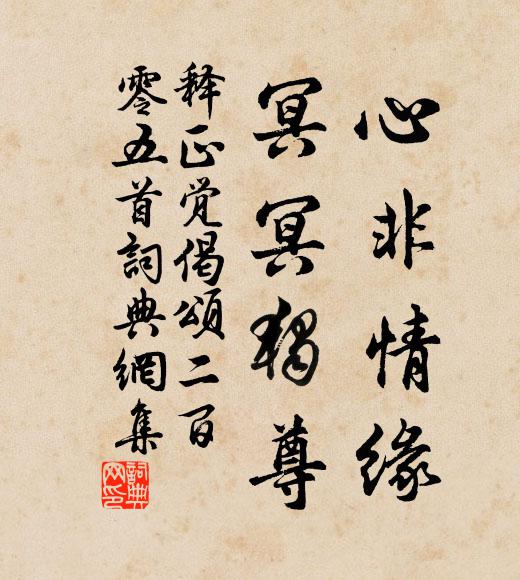 心非情缘
冥冥独尊
释正觉偈颂二百
零五首詞典網集
詞典网印